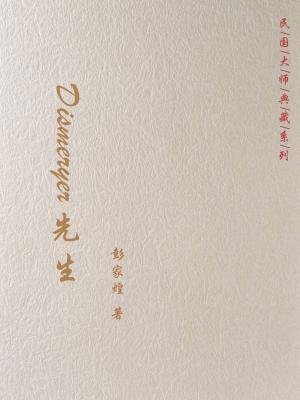 民|国|大|师|典|藏|系|列
Dismeryer先生
彭家煌 著